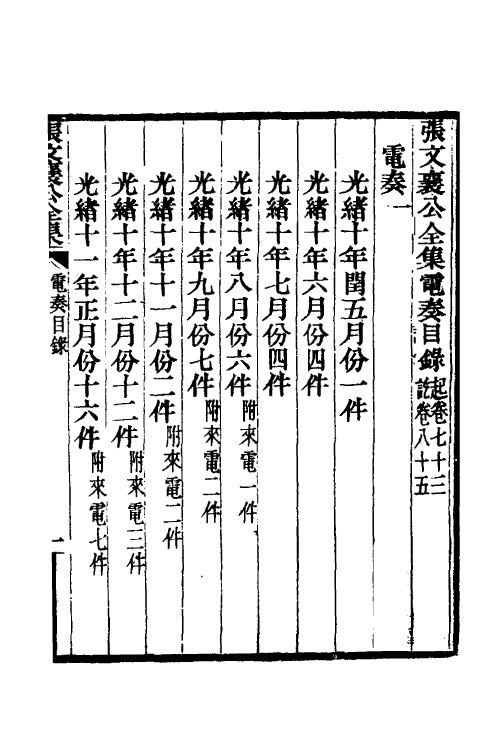 張文襄公全集電奏目錄 起卷七十三 訖卷八十五
電奏一
光緒十年閏五月份一件
光緒十年六月份四件
光緒十年七月份四件
光緒十年八月份六件 附來電一件
光緒十年九月份七件 附來電二件
光緒十年十一月份二件 附來電二件
光緒十年十二月份十二件 附來電三件
光緒十一年正月份十六件 附來電七件
張文襄公全集 電奏目錄 一